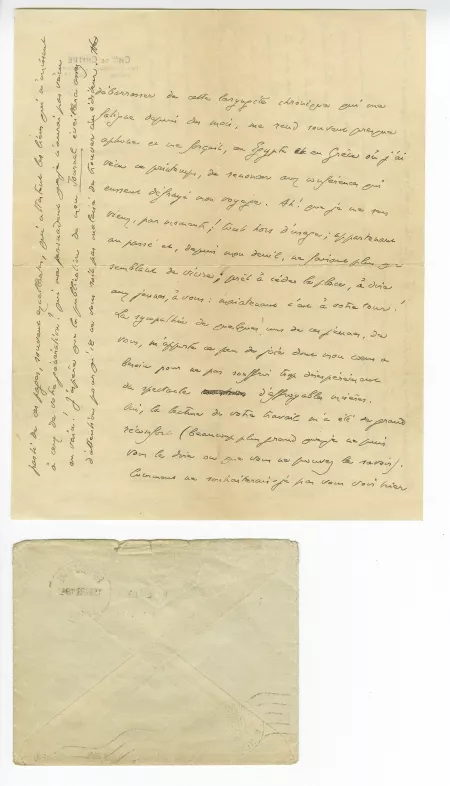 débarrasser de cette laryngite chronique qui me
fatigue depuis des mois, me rend souvent presque
aphone et me forçait, en Égypte et en Grèce où j'ai
vécu ce printemps, de renoncer aux conférences qui
eussent défrayé mon voyage. Ah! que je me sens
vieux, par moments! tout hors d'usage; appartenant
au passé et, depuis mon deuil, ne faisant plus que
semblant de vivre; prêt à céder la place, à dire
aux jeunes, à vous: maintenant c'est à votre tour!
La sympathie de quelques uns de ces jeunes, de
vous, m'apporte ce peu de joie dont mon cœur a
besoin pour ne pas souffrir trop désespérément
du spectacle d'effroyables misères.
Oui, la lecture de votre travail m'a été de grand
réconfort (beaucoup plus grand que je ne puis
vous le dire ou que vous ne pouvez le savoir).
Comment ne souhaiterais-je pas vous voir tirer
parti de ces pages, souvent excellentes, qui
à ceux de votre génération? qui me persuadent que je n'aurai pas vécu
en vain! J'espère que la publication de mon Journal éveillera assez
d'attention pour qu'il ne vous soit pas malaisé de trouver un éditeur.